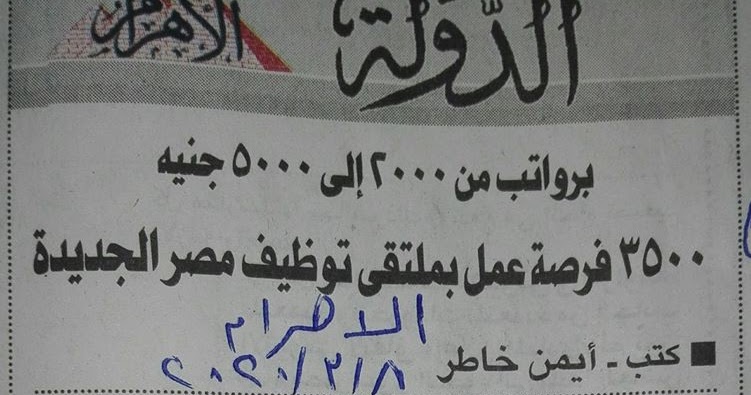 الأهرام
الدولة
برواتب من ٢٠٠٠ إلى ٥٠٠٠ جنيه
٣٥٠٠ فرصة عمل بملتقى توظيف مصر الجديدة
الاهرام
■ كتب ـ أيمن خاطر
٢٠٢٠/٣/٨